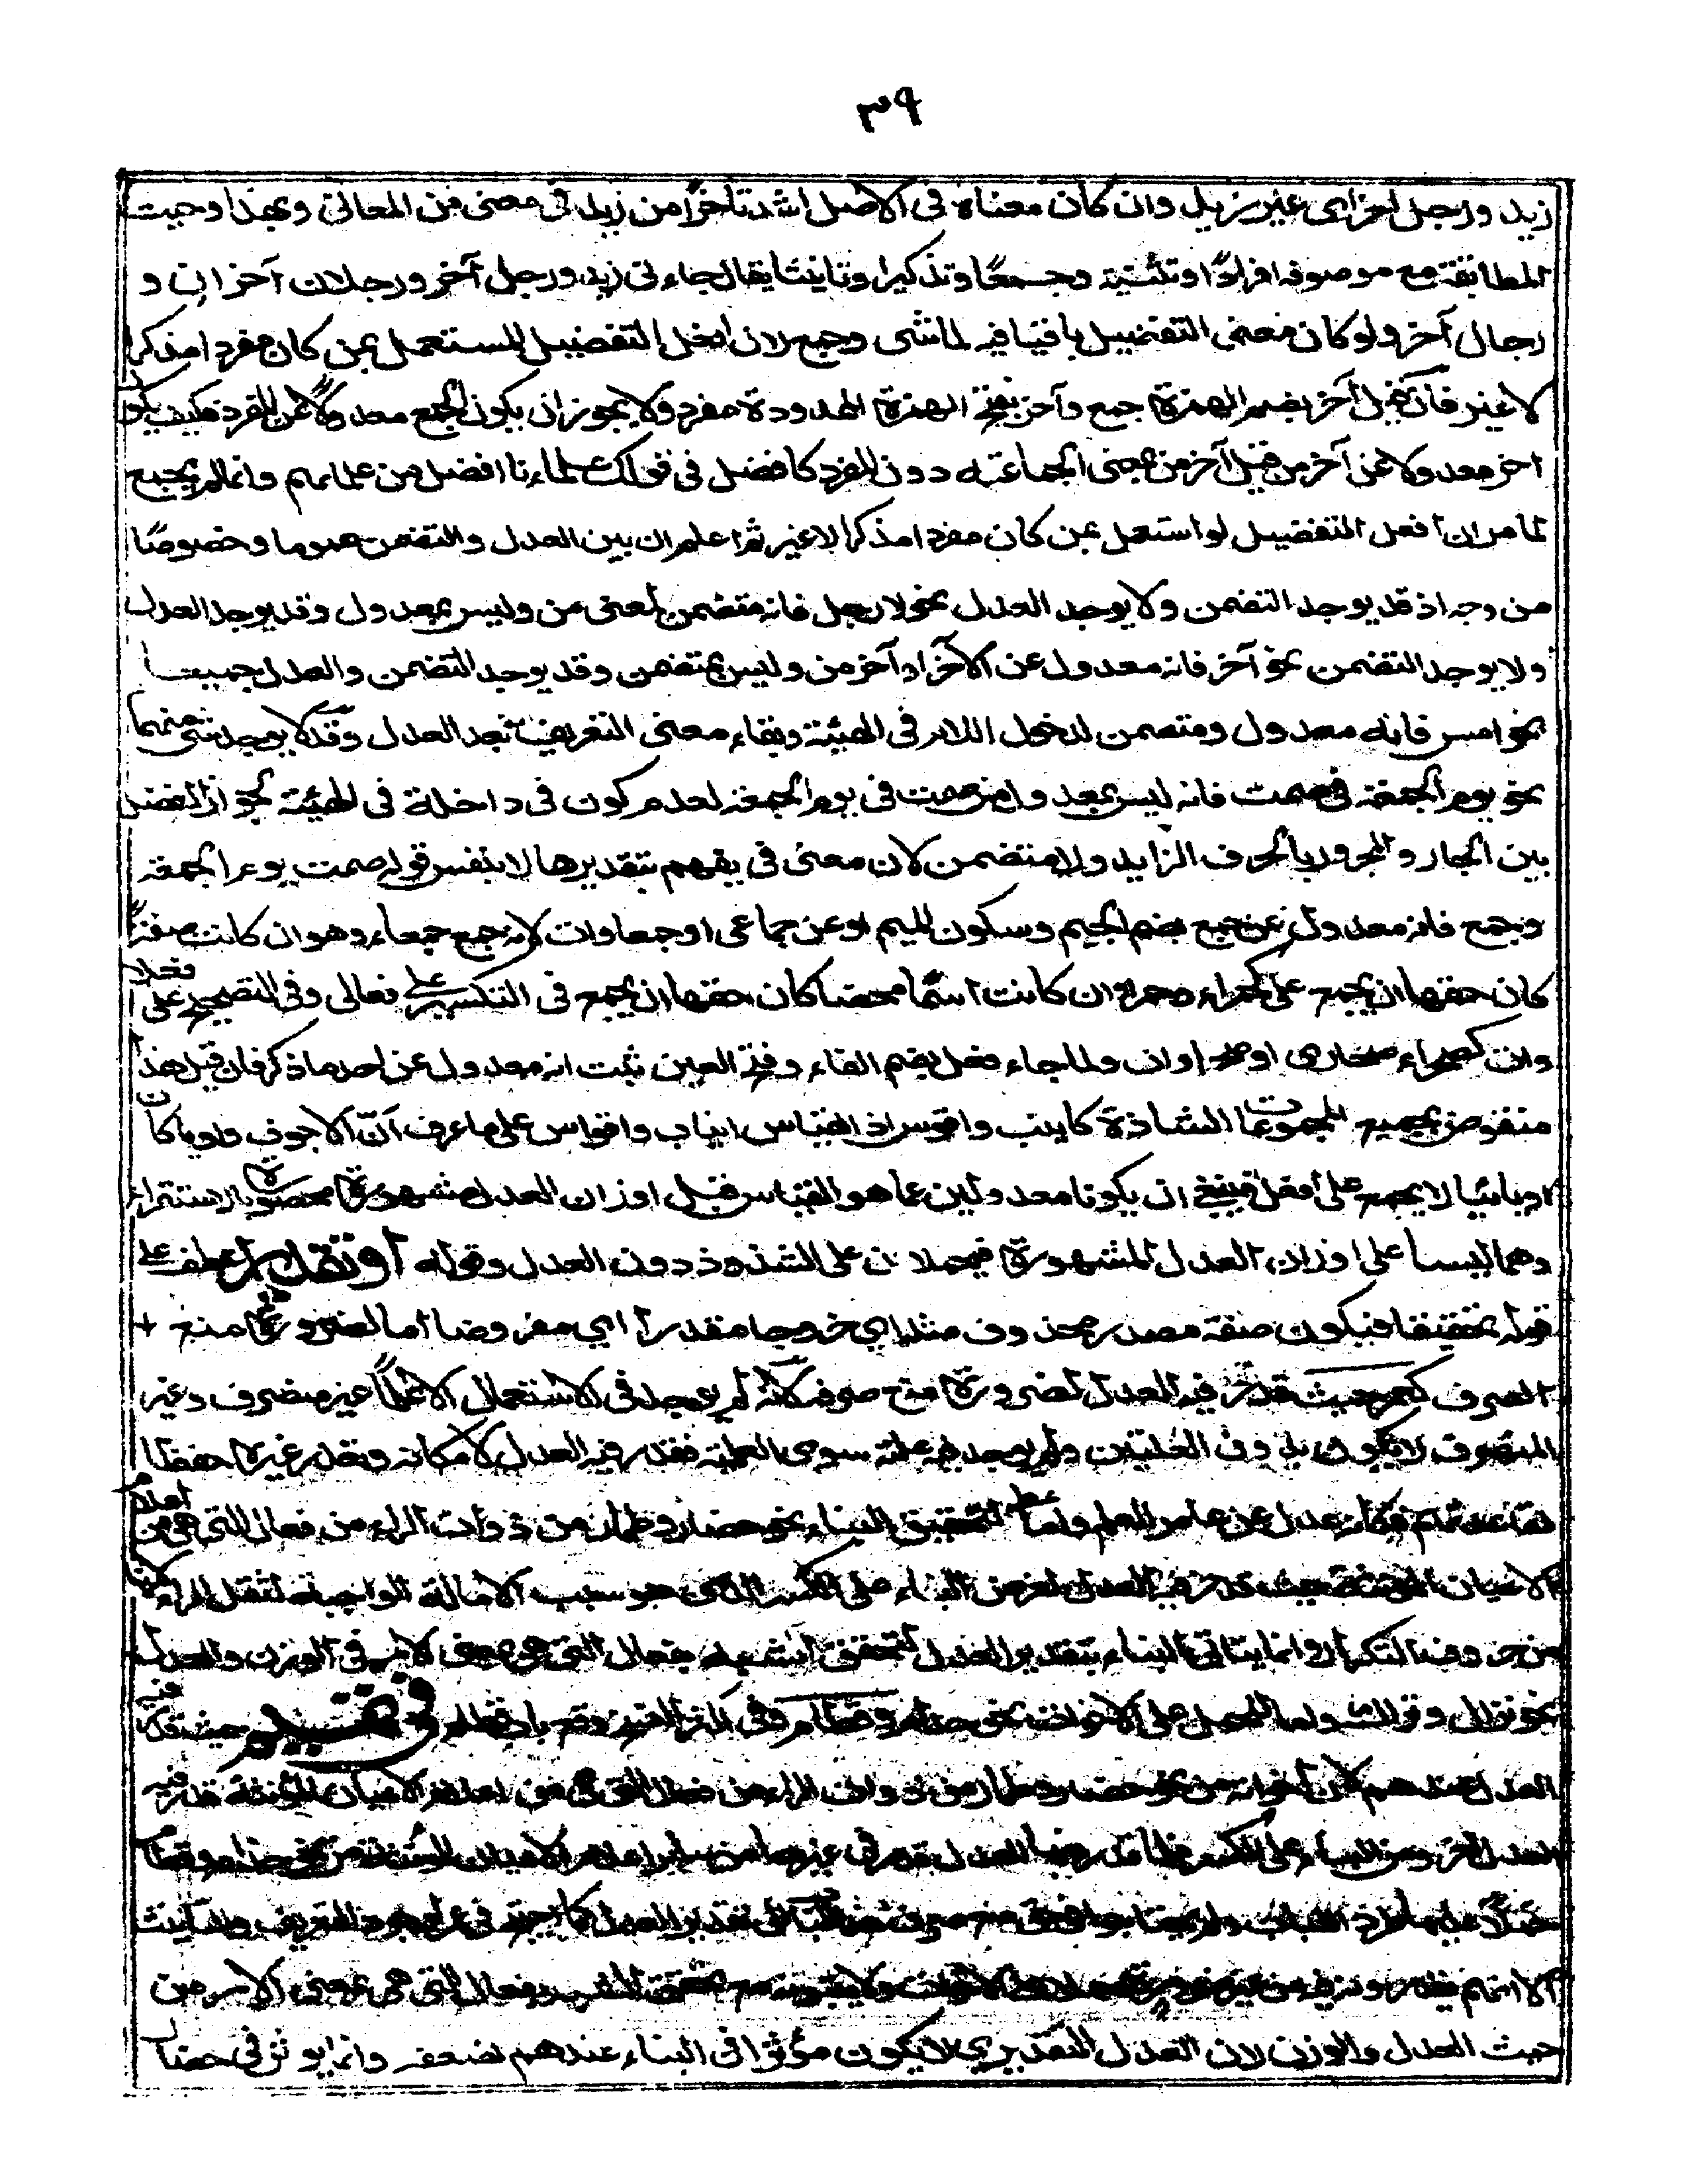 ٣٩
زيد ورجل اخر اى غير زيد وان كان معناه فى الاصل اشد تاخرًا من زيد فى معنى من المعانى وبهذا وجبت
المطابقة مع موصوفه افرادًا وتثنية وجمعًا وتذكيرا وتانيثا يقال جاءنى زيد ورجل آخر ورجلان آخران و
رجال آخر ولو كان معنى التفضيل باقيا فيه لما ثنى وجمع لان افعل التفضيل المستعمل بمن كان مفردا مذكرا
لا غير فان قيل آخر بضم الهمزة جمع وآخر بفتح الهمزة الممدودة مفرد ولا يجوز ان يكون الجمع معدولًا عن المفرد فكيف يكون
اخر معدولا عن آخر من قيل آخر من بمعنى الجماعة دون المفرد كافضل فى قولك علماءنا افضل من علمائهم وانما لم يجمع
لما مر ان افعل التفضيل لو استعمل بمن كان مفردا مذكرا لا غير ثم اعلم ان بين العدل والتضمن عموما وخصوصًا
من وجه اذ قد يوجد التضمن ولا يوجد العدل نحو لا رجل فانه متضمن لمعنى من وليس بمعدول وقد يوجد العدل
ولا يوجد التضمن نحو آخر فانه معدول عن الآخر او آخر من وليس بمتضمن وقد يوجد التضمن والعدل جميعا
نحو امس فانه معدول ومتضمن لدخول اللام فى الهيئة وبقاء معنى التعريف بعد العدل وقد لا يوجد شئ منهما
نحو يوم الجمعة فى صمت فانه ليس بمعدول من صمت فى يوم الجمعة لعدم كون فى داخلة فى الهيئة لجواز الفصل
بين الجار والمجرور بالحرف الزايد ولا متضمن لان معنى فى يفهم بتقديرها لا بنفس قوله صمت يوم الجمعة
وجمع فانه معدول عن جمع بضم الجيم وسكون الميم او عن جماعى او جمعاوات لانه جمع جمعاء وهو ان كانت صفة
كان حقها ان يجمع على كحمراء وحمر وان كانت اسمًا محضا كان حقها ان يجمع فى التكسير على فعالى وفى التصحيح على فعلا
وات كصحراء صحارى او صحراوات ولما جاء فعل بضم الفاء وفتح العين ثبت انه معدول عن احدها ذكر فان قيل هذا
منقوض بجميع المجموعات الشاذة كانيب واقوس اذ القياس انياب واقواس على ما عرف انّ الاجوف واويا كان
او يائيا لا يجمع على افعل فينبغى ان يكونا معدولين عما هو القياس قيل اوزان العدل مشهورة محصورة بالاستقراء
وهما ليسا على اوزان العدل المشهورة فيحملان على الشذوذ دون العدل وقوله او تقديرا عطف على
قوله تحقيقا فيكون صفة مصدر محذوف مثله اى خروجا مقدرا اى مفروضا اما لضرورة منع
الصرف كعمر حيث قدر فيه العدل لضرورة منع صرفه لانه لم يوجد فى الاستعمال الا علمًا غير منصرف وغير
المنصرف لا يكون بدون العلتين ولم يوجد فيه علة سوى العلمية فقدر فيه العدل لامكانه وتعذر غيره حفظا
لقاعدتهم فكانه عدل عن عامر العلم واما لتحقيق البناء نحو حضار وطمار من ذوات الراء من فعال التى هى من اعلام
الاعيان المؤنثة حيث قدر فيه العدل لغرض البناء على الكسر الذى هو سبب الامالة الواجبة لثقل الراء لانها
من حروف التكرار وانما يتاتى البناء بتقدير العدل لتحقق الشبه بفعال التى هى بمعنى الامر فى الوزن والعدل
نحو نزال وتراك واما للحمل على الاخوات نحو حذام وقطام وفى اكثر النسخ وقع باب قطام فى تميم حيث قدر فيه
العدل عندهم لان اخواته من نحو حضار وطمار من ذوات الراء من فعال التى هى من اعلام الاعيان المؤنثة قدر فيه
العدل لغرض البناء على الكسر فلما قدر فيها العدل قدر فى غيرها من سائر اعلام الاعيان المؤنثة من نحو حذام وقطام
الا انهم
حيث العدل والوزن لان العدل التقديرى لا يكون مؤثرا فى البناء عندهم لضعفه وانما يوثر فى حضار